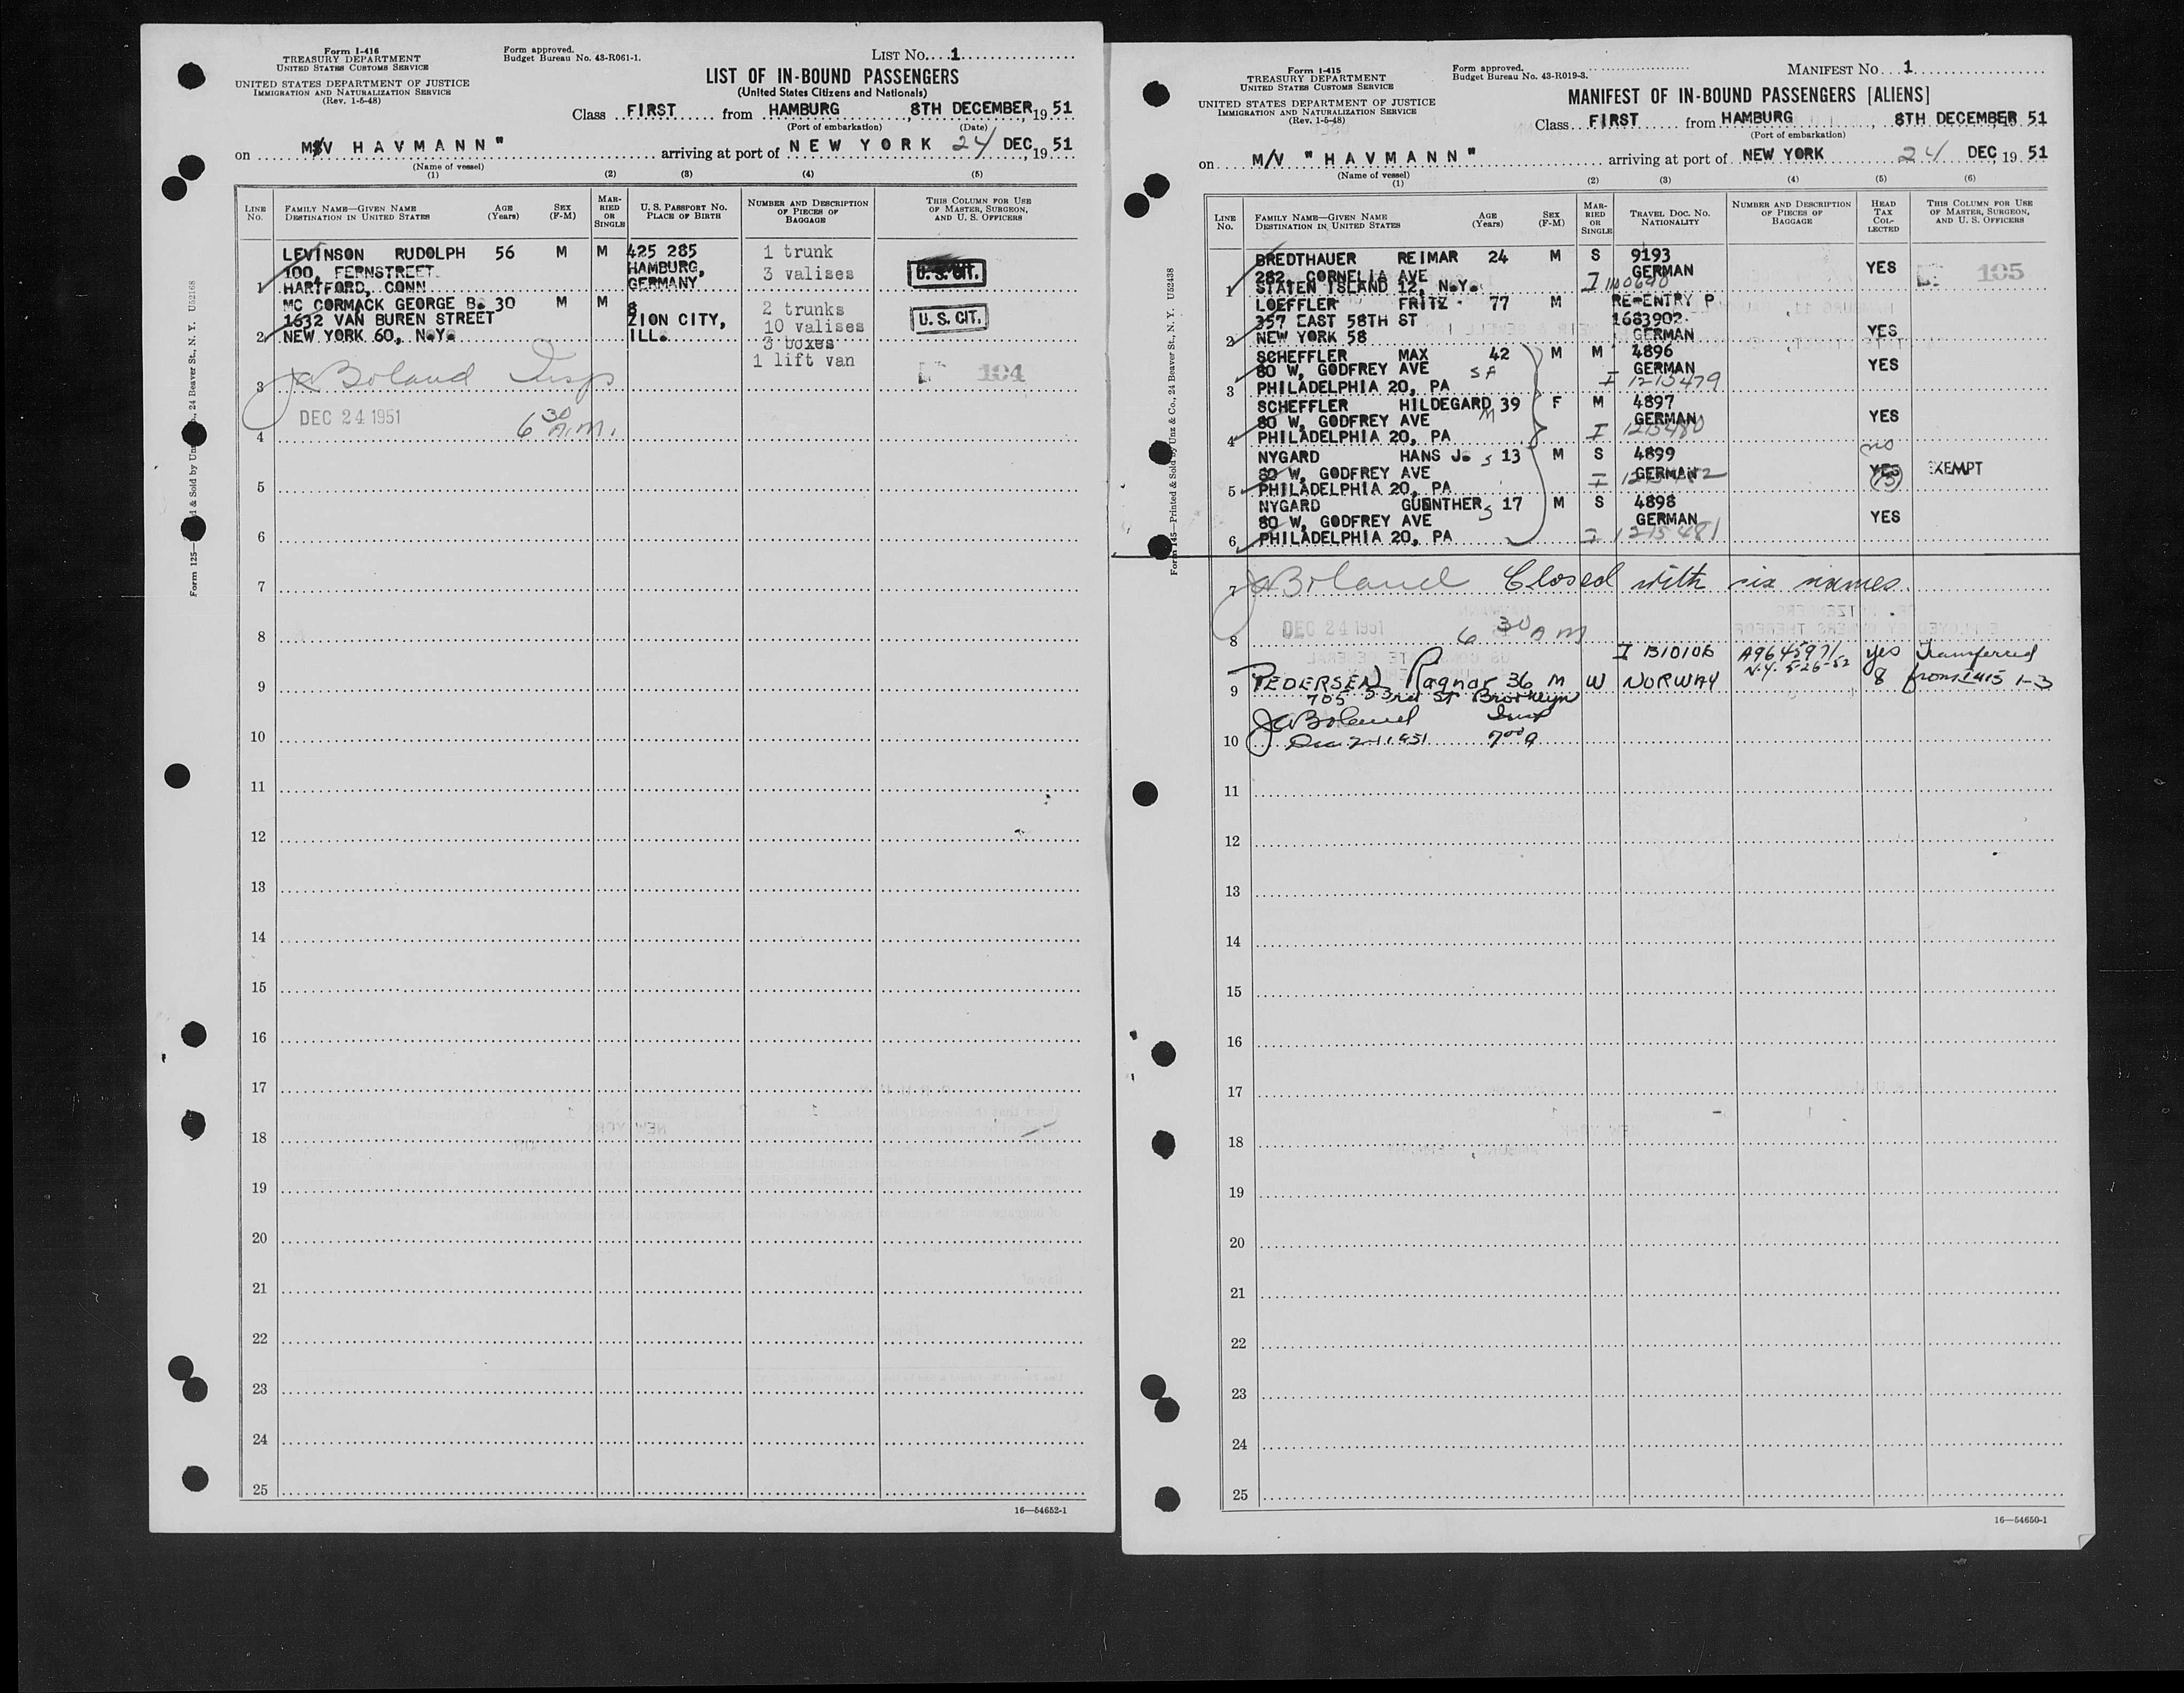 Form I-416
TREASURY DEPARTMENT
UNITED STATES CUSTOMS SERVICE
UNITED STATES DEPARTMENT OF JUSTICE
IMMIGRATION AND NATURALIZATION SERVICE
(Rev. 1-5-48)
Form approved.
Budget Bureau No. 43-R061-1.
LIST No. 1
LIST OF IN-BOUND PASSENGERS
(United States Citizens and Nationals)
Class FIRST from HAMBURG, 8TH DECEMBER, 19 51
(Port of embarkation) (Date)
on M/V HAVMANN" arriving at port of NEW YORK 24 DEC, 19 51
(Name of vessel)
(1) (2) (3) (4) (5)
LINE No. FAMILY NAME—GIVEN NAME DESTINATION IN UNITED STATES AGE (Years) SEX (F-M) MARRIED OR SINGLE U. S. PASSPORT No. PLACE OF BIRTH NUMBER AND DESCRIPTION OF PIECES OF BAGGAGE THIS COLUMN FOR USE OF MASTER, SURGEON, AND U. S. OFFICERS
LEVINSON RUDOLPH 56 M M 425 285 1 trunk
100, FERNSTREET HAMBURG, 3 valises U. S. CIT.
1 HARTFORD, CONN GERMANY
MC CORMACK GEORGE B. 30 M M 8 2 trunks
1632 VAN BUREN STREET ZION CITY, 10 valises U. S. CIT.
2 NEW YORK 60, N.Y. ILL. 3 boxes
1 lift van
3 Boland Insp 104
DEC 24 1951 6 30 A.M.
4
5
6
7
8
9
10
11
12
13
14
15
16
17
18
19
20
21
22
23
24
25
16—54652-1
Form I-415
TREASURY DEPARTMENT
UNITED STATES CUSTOMS SERVICE
UNITED STATES DEPARTMENT OF JUSTICE
IMMIGRATION AND NATURALIZATION SERVICE
(Rev. 1-5-48)
Form approved.
Budget Bureau No. 43-R019-3.
MANIFEST No. 1
MANIFEST OF IN-BOUND PASSENGERS [ALIENS]
Class FIRST from HAMBURG, 8TH DECEMBER, 19 51
(Port of embarkation)
on M/V "HAVMANN" arriving at port of NEW YORK 24 DEC, 19 51
(Name of vessel)
(1) (2) (3) (4) (5) (6)
LINE No. FAMILY NAME—GIVEN NAME DESTINATION IN UNITED STATES AGE (Years) SEX (F-M) MARRIED OR SINGLE TRAVEL DOC. No. NATIONALITY NUMBER AND DESCRIPTION OF PIECES OF BAGGAGE HEAD TAX COLLECTED THIS COLUMN FOR USE OF MASTER, SURGEON, AND U. S. OFFICERS
BREDTHAUER REIMAR 24 M S 9193
282, CORNELIA AVE GERMAN YES 105
1 STATEN ISLAND 12, N.Y.
LOEFFLER FRITZ 77 M RE-ENTRY P
357 EAST 58TH ST 1683902
2 NEW YORK 58 GERMAN YES
SCHEFFLER MAX 42 M M 4896
80 W, GODFREY AVE GERMAN YES
3 PHILADELPHIA 20, PA I 1215479
SCHEFFLER HILDEGARD 39 F M 4897
80 W, GODFREY AVE GERMAN YES
4 PHILADELPHIA 20, PA I 1215480
NYGARD HANS J. 13 M S 4899 no
80 W, GODFREY AVE GERMAN YES EXEMPT
5 PHILADELPHIA 20, PA
NYGARD GUENTHER 17 M S 4898
80 W, GODFREY AVE GERMAN YES
6 PHILADELPHIA 20, PA I 1215481
7 Boland Closed with six names.
8 DEC 24 1951 6 30 AM
I B1010B A9645971 yes Transferred
N.Y. 5-26-52
9 PEDERSEN Ragnar 36 M W NORWAY 8 from I 415 1-3
705 53rd ST Brooklyn
Boland Insp
10 Dec 24 1951 7 00 a
11
12
13
14
15
16
17
18
19
20
21
22
23
24
25
16—54650-1